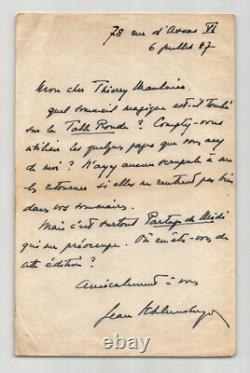 78 rue d'Assas VI
6 juillet 57
Mon cher Thierry Maulnier,
quel sommeil magique est-il tombé
sur la Table Ronde ? Comptez-vous
utiliser les quelques pages que vous avez
de moi ? N'ayez aucun scrupule à me
les retourner si elles ne rentrent pas bien
dans vos sommaires.
Mais c'est surtout Partage de Midi
qui me préoccupe. Où en êtes-vous de
cette édition ?
Amicalement à vous
Jean Schlumberger